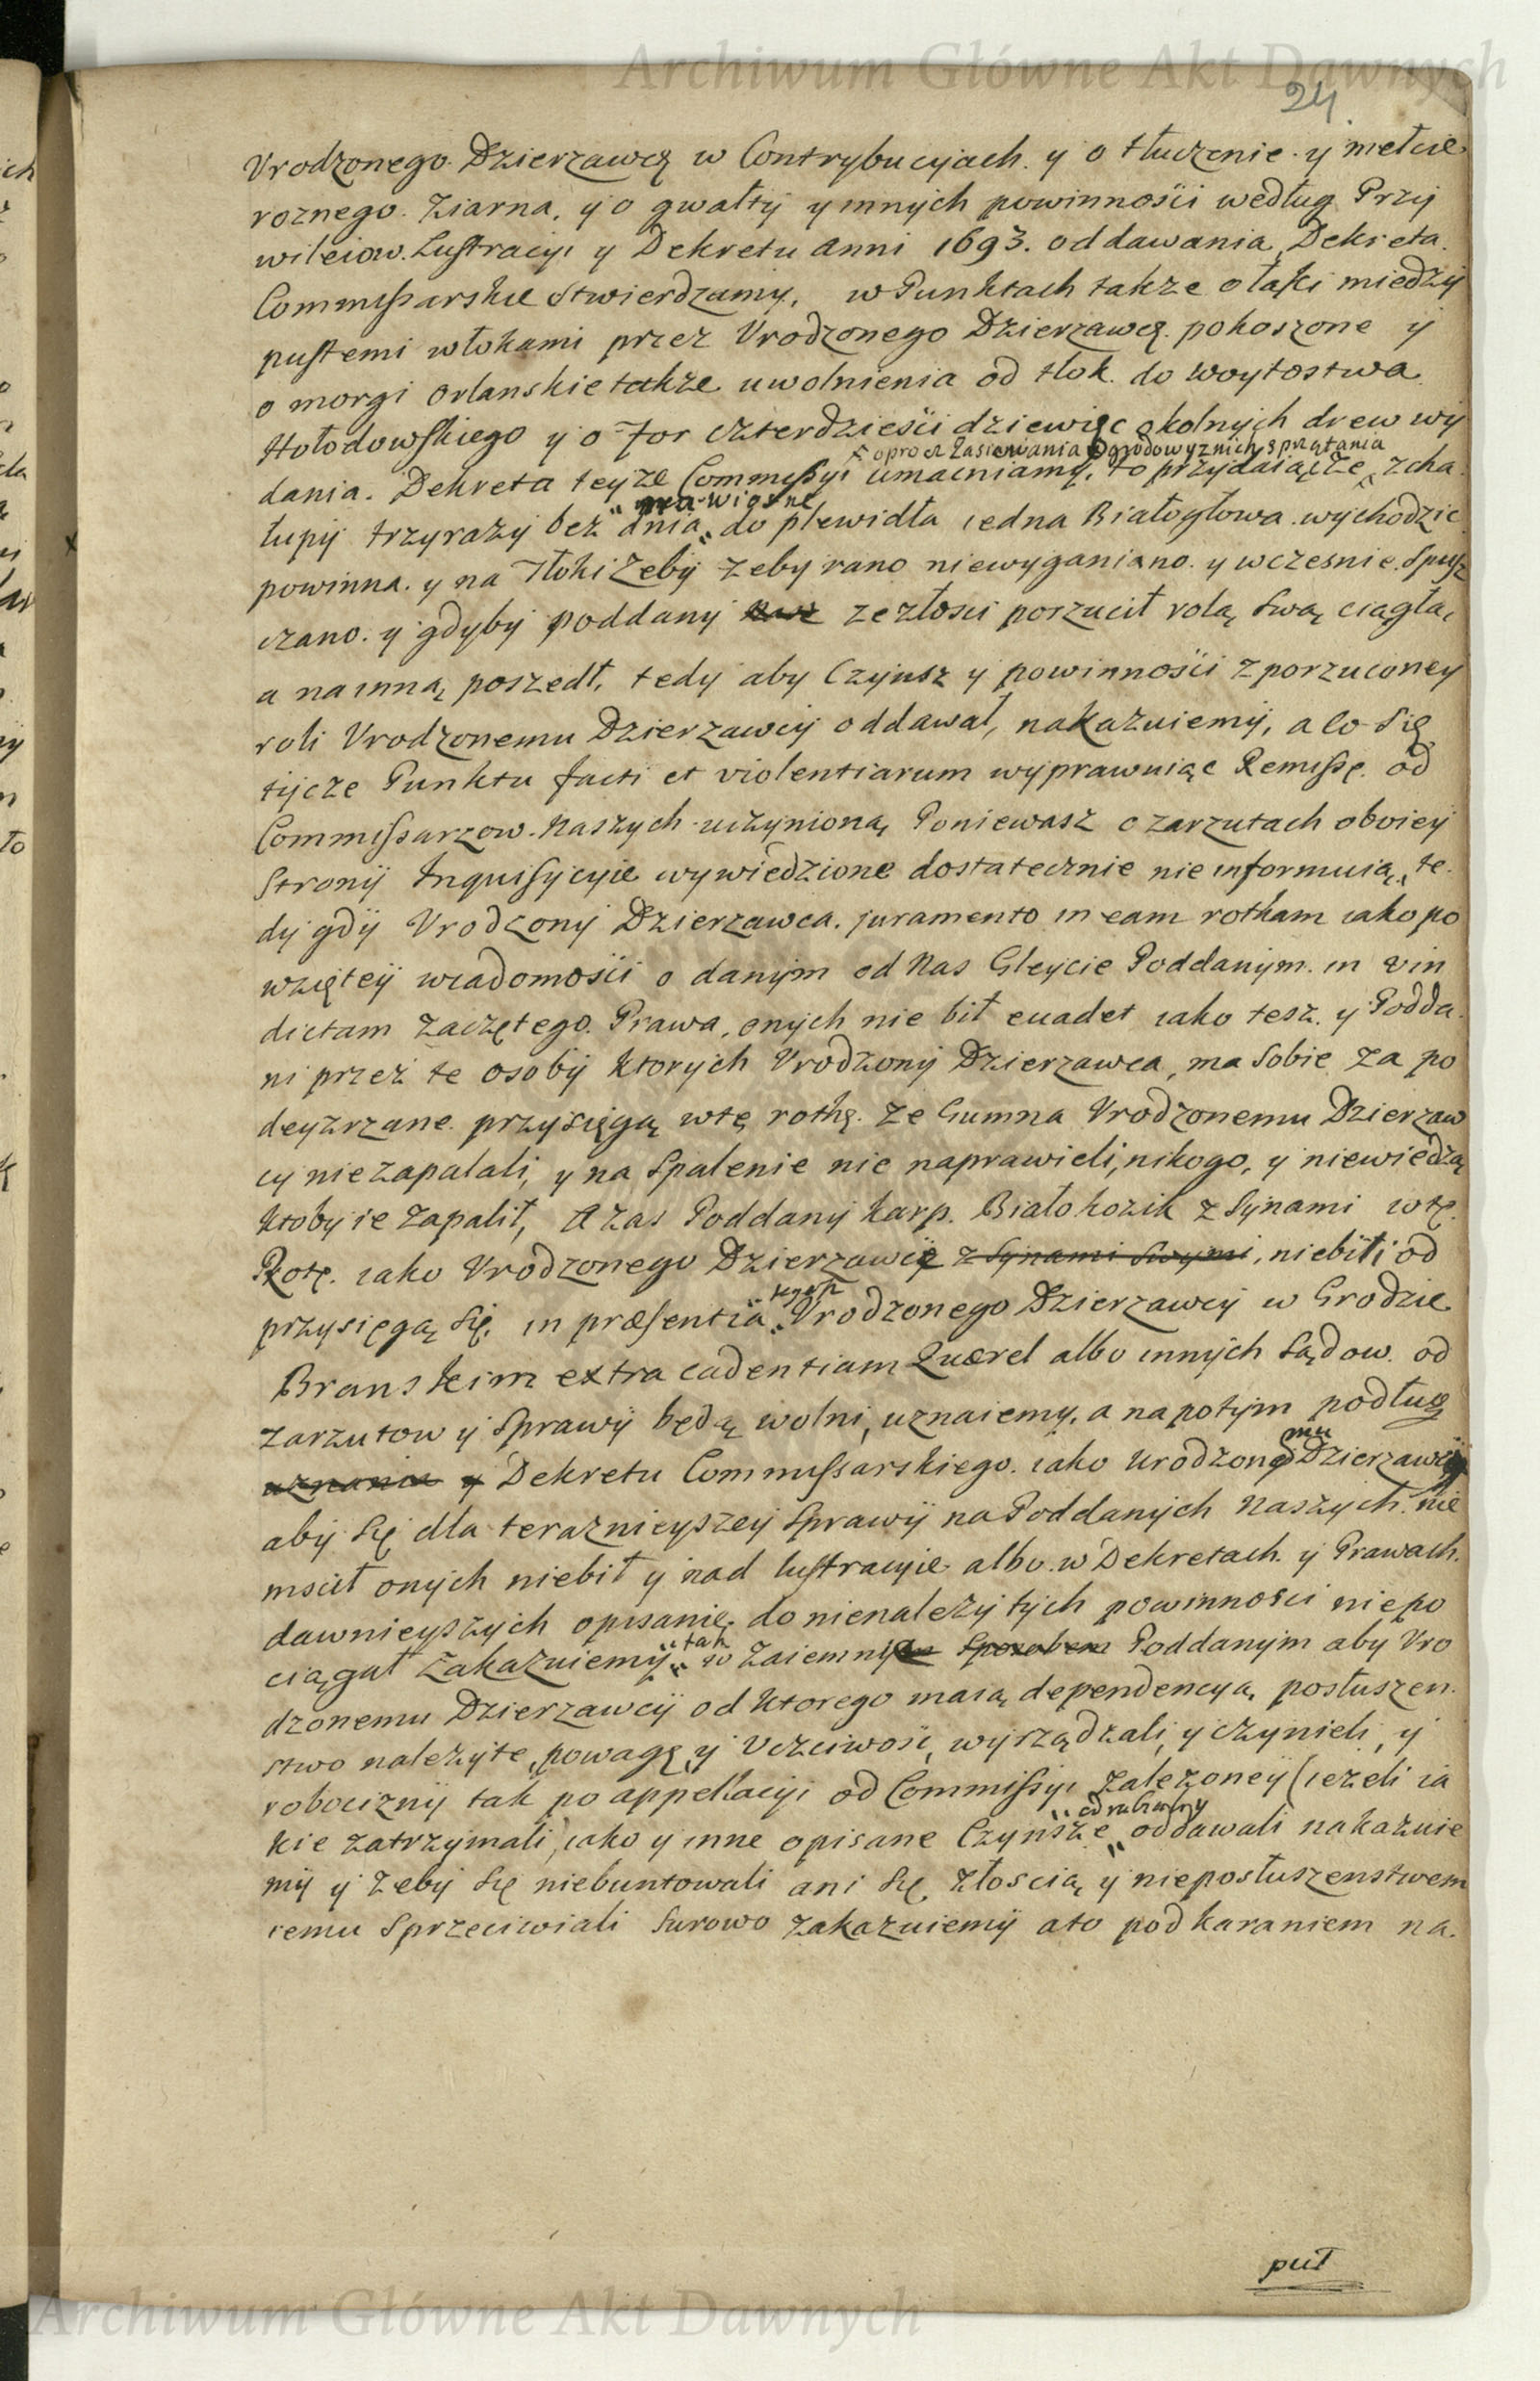 Archiwum Główne Akt Dawnych
24
Vrodzonego Dzierzawcę w Contrybucyjach. y o tłuczenie y mełcie
roznego Ziarna, y o gwałty y innych powinnośći według Przy
wileiow. Lustracyi y Dekretu Anni 1693. oddawania, Dekreta
Commissarskie stwierdzamy, w Punktach także o łąki miedzy
pustemi włokami przez Vrodzonego Dzierzawcę pokoszone y
o morgi orlanskie także uwolnienia od tłok do woytostwa
Hołodowskiego y o For czterdzieśći dziewięc okolnych drew wy
oprocz zasiewania Ogrodowyznich sprzątania
dania. Dekreta teyze Commissyi umacniamy, to przydaiąc ze zcha
na wiosne
łupy trzy razy bez dnia do plewidła iedna Białogłowa wychodzic
x powinna. y na Tłoki Zeby zeby rano niewyganiano. y wczesnie Spusz
czano. y gdyby poddany ze złosci porzucił rolą Swą ciągłą,
a na inną poszedł, tedy aby Czynsz y powinnośći z porzuconey
roli Vrodzonemu Dzierzawcy oddawał, nakazuiemy, a Co Się
tycze Punktu facti et violentiarum wyprawuiąc Remissę od
Commissarzow Naszych uczynioną Poniewasz o zarzutach oboiey
Strony Inquisycyie wywiedzione dostatecznie nie informuią, te
dy gdy Vrodzony Dzierzawca juramento in eam rotham iako po
wziętey wiadomośći o danym od Nas Gleycie Poddanym in vin
dictam zaczętego Prawa, onych nie bił euadet iako tesz y Podda
ni przez te osoby ktorych Vrodzony Dzierzawca, ma Sobie za po
deyzrzane przysięgą w tę rothę ze Gumna Vrodzonemu Dzierzaw
cy nie zapalali, y na Spalenie nie naprawieli, nikogo, y niewiedzą
ktoby ie zapalił, A zas Poddany Karp. Białokozik z Synami w tę
Rotę iako Vrodzonego Dzierzawcę z Synami Swymi, niebili od
tegosz
przysięgą Się. in præsentia Vrodzonego Dzierzawcy w Grodzie
Branskim extra cadentiam Querel albo innych Sądow od
zarzutow y Sprawy będą wolni, uznaiemy, a napotym podług
mu
uznania y Dekretu Commissarskiego iako Urodzone Dzierzawcy
aby Się dla teraznieyszey Sprawy na Poddanych Naszych nie
mścił onych niebił y nad lustracyie albo w Dekretach y Prawach
dawnieyszych opisanie do nienalezytych powinnosci niepo
tak
ciągał Zakazuiemy Zaiemnym Sposobem Poddanym aby Vro
dzonemu Dzierzawcy od ktorego maią dependencyą posłuszen
stwo nalezyte, powagę y Vczciwość, wyrządzali, y czynieli, y
robocizny tak po appellacyi od Commissyi założoney (ieżeli ia
kie zatrzymali, iako y inne opisane Czynsze oddawali nakazuie
my y zeby Się niebuntowali ani Się złoscią y nieposłuszenstwem
iemu Sprzeciwiali Surowo zakazuiemy a to pod karaniem na
puł
Archiwum Główne Akt Dawnych